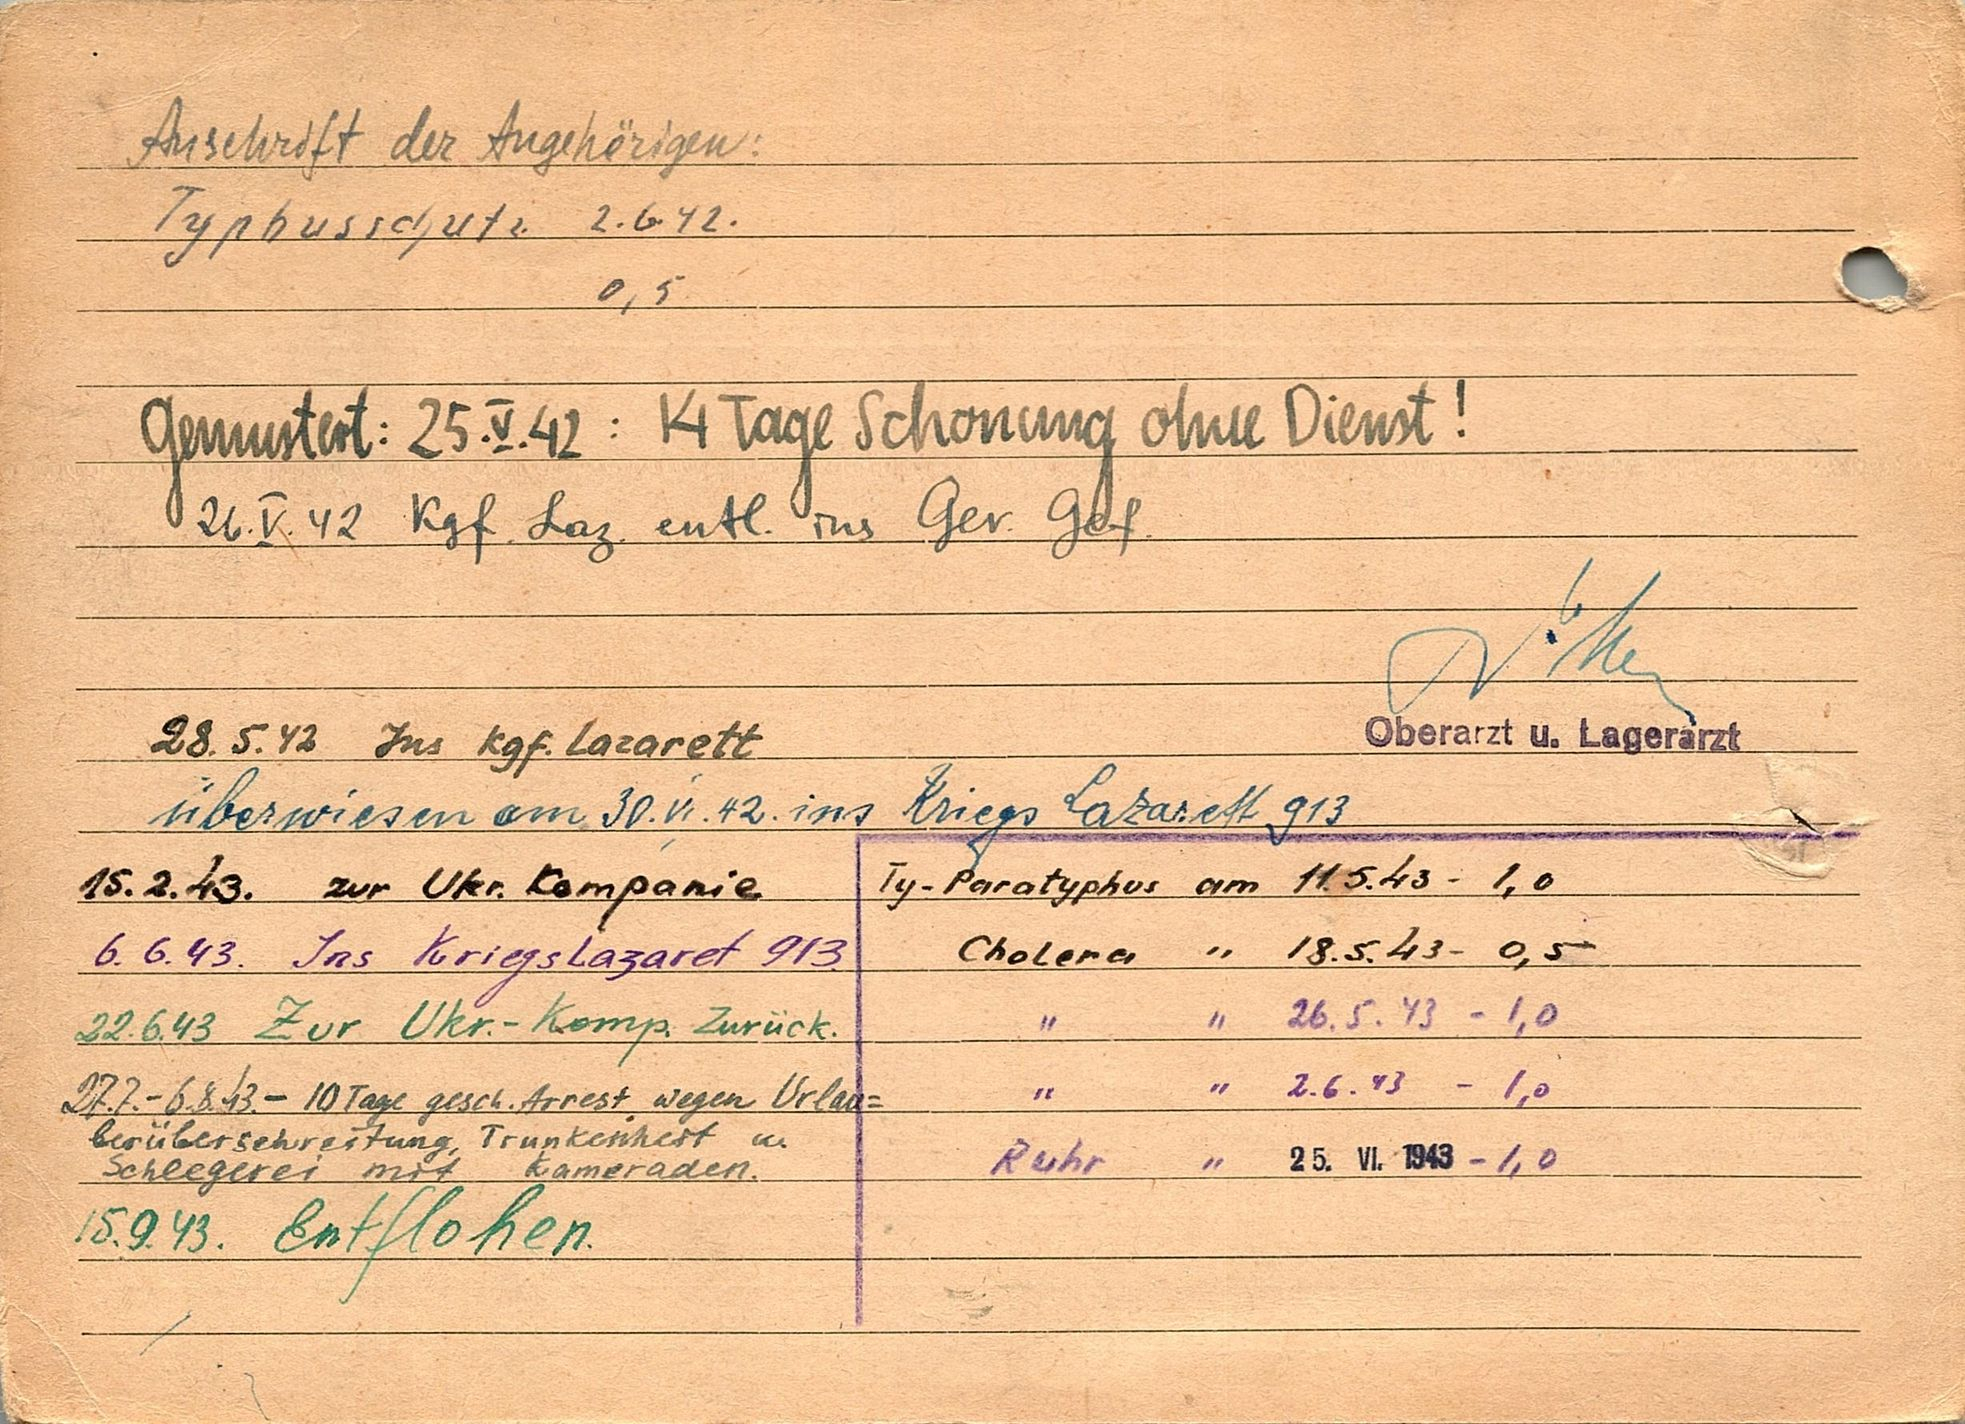 Anschrift der Angehörigen:
Typhusschutz 2.6.42.
0,5
Gemustert: 25.V.42 : 14 Tage Schonung ohne Dienst!
26.V.42 Kgf. Laz. entl. ins Ger. Gef.
28.5.42 Ins Kgf. Lazarett
Oberarzt u. Lagerarzt
überwiesen am 30.VI.42. ins Kriegs Lazarett 913
15.2.43. zur Ukr. Kompanie
6.6.43. Ins KriegsLazaret 913
22.6.43 Zur Ukr.-Komp. Zurück.
27.7.-6.8.43.- 10 Tage gesch. Arrest wegen Urlau=
berüberschreitung, Trunkenheit u.
Schlegerei mit Kameraden.
15.9.43. Entflohen.
Ty-Paratyphus am 11.5.43 - 1,0
Cholera " 18.5.43 - 0,5
" " 26.5.43 - 1,0
" " 2.6.43 - 1,0
Ruhr " 25. VI. 1943 - 1,0